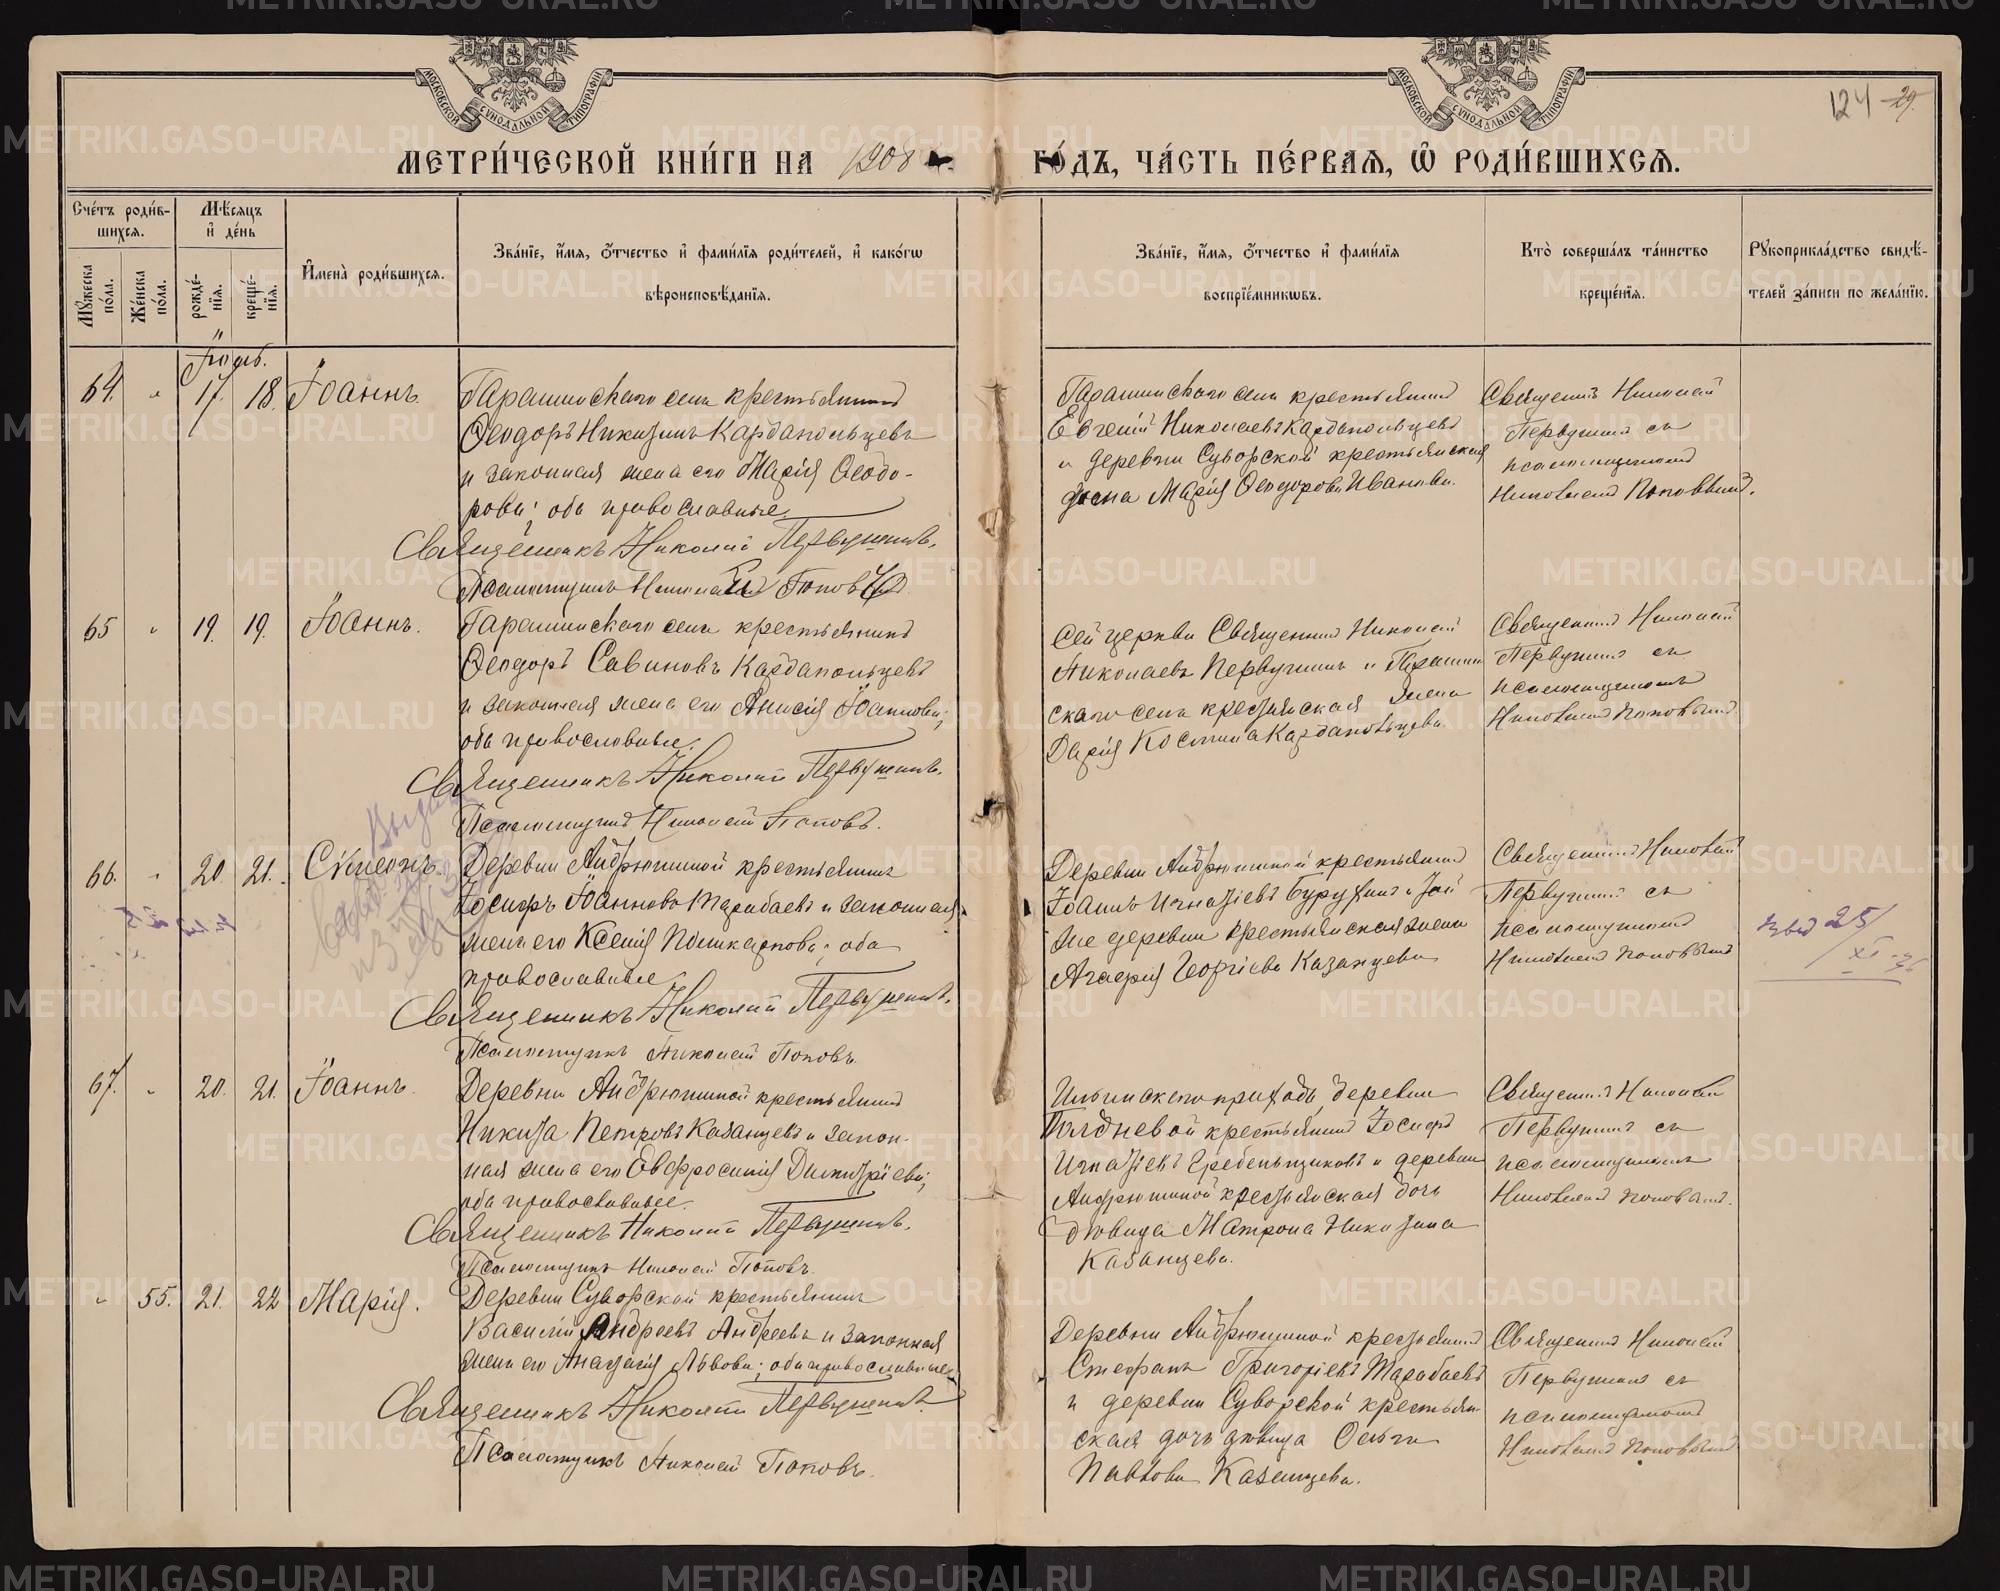 МОСКОВСКОЙ СѴНОДАЛЬНОЙ ТИПОГРАФІИ
МОСКОВСКОЙ СѴНОДАЛЬНОЙ ТИПОГРАФІИ
124 29.
МЕТРИ́ЧЕСКОЙ КНИ́ГИ НА 1908
ГО́ДЪ, ЧА́СТЬ ПЕ́РВАЯ, Ѡ҆ РОДИ́ВШИХСЯ.
Сче́тъ роди́в-
шихся.
Мѣ́сяцъ
и҆ де́нь
Мꙋ́жеска по́ла.
Же́нска по́ла.
рожде́-нїя.
креще́-нїя.
И҆мена̀ роди́вшихся.
Зва́нїе, и҆́мя, ѻ҆́тчество и҆ фами́лїя роди́телей, и҆ како́гѡ
вѣроисповѣ́данїя.
Зва́нїе, и҆́мя, ѻ҆́тчество и҆ фами́лїя
воспрїе́мникѡвъ.
Кто̀ соверша́лъ та́инство
креще́нїя.
Рꙋкоприкла́дство свидѣ́-
телей за́писи по жела́нїю.
64. " 17. 18. Іоаннъ.
Гарашинскаго села крестьянинъ
Ѳеодоръ Никитинъ Кардапольцевъ
и законная жена его Марія Ѳеодо-
рова; оба православные.
Священникъ Николай Первушинъ.
Псаломщикъ Николай Поповъ
Гарашинскаго села крестьянинъ
Евгеній Николаевъ Кардапольцевъ
и деревни Суворской крестьянская
жена Марія Ѳеодорова Иванова.
Священникъ Николай
Первушинъ съ
псаломщикомъ
Николаемъ Поповымъ.
65 " 19. 19. Іоаннъ.
Гарашинскаго села крестьянинъ
Ѳеодоръ Савиновъ Кардапольцевъ
и законная жена его Анисія Іоаннова;
оба православные.
Священникъ Николай Первушинъ.
Псаломщикъ Николай Поповъ.
Сей церкви Священникъ Николай
Николаевъ Первушинъ и Гарашин
скаго села крестьянская жена
Дарія Космина Кардапольцева.
Священникъ Николай
Первушинъ съ
псаломщикомъ
Николаемъ Поповымъ
66. " 20. 21. Сѵмеонъ.
Деревни Андрюшиной крестьянинъ
Іосифъ Іоанновъ Тарабаевъ и законная
жена его Ксенія Поликарпова; оба
православные
Священникъ Николай Первушинъ.
Псаломщикъ Николай Поповъ.
Деревни Андрюшиной крестьянинъ
Іоаннъ Игнатіевъ Бурухинъ и той
же деревни крестьянская жена
Агафія Георгіева Казанцева
Священникъ Николай
Первушинъ съ
псаломщикомъ
Николаемъ Поповымъ
25/XI
67. " 20. 21. Іоаннъ.
Деревни Андрюшиной крестьянинъ
Никита Петровъ Казанцевъ и закон-
ная жена его Евфросинія Димитріева;
оба православные.
Священникъ Николай Первушинъ.
Псаломщикъ Николай Поповъ.
Ильинскаго прихода, деревни
Полдневой крестьянинъ Іосифъ
Игнатіевъ Гребеньщиковъ и деревни
Андрюшиной крестьянская дочь
дѣвица Матрона Никитина
Казанцева.
Священникъ Николай
Первушинъ съ
псаломщикомъ
Николаемъ Поповымъ.
" 55. 21. 22 Марія.
Деревни Суворской крестьянинъ
Василій Андреевъ Андреевъ и законная
жена его Анастасія Львова; оба православные
Священникъ Николай Первушинъ
Псаломщикъ Николай Поповъ.
Деревни Андрюшиной крестьянинъ
Стефанъ Григоріевъ Тарабаевъ
и деревни Суворской крестьян-
ская дочь дѣвица Ольга
Павлова Казанцева.
Священникъ Николай
Первушинъ съ
псаломщикомъ
Николаемъ Поповымъ
METRIKI.GASO-URAL.RU